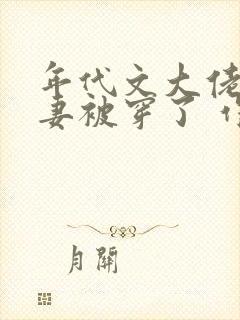 年代文大佬
妻被穿了
月關